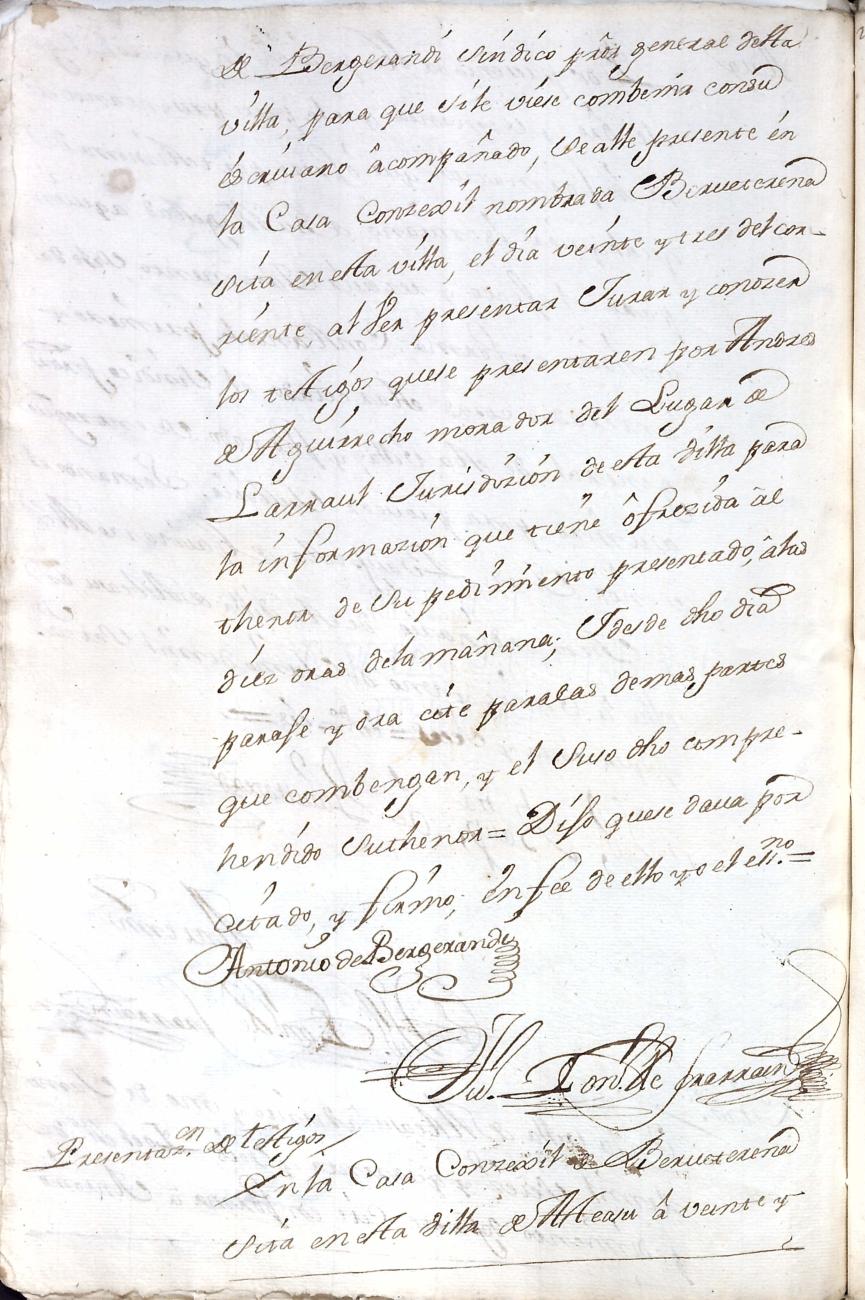 de Bergerandi sindico pror general desta
villa, para que si le viese combenir consu
escriuano acompañado, se alle presente en
la Casa Conzexil nombrada Berueterena
sita en esta villa, el dia veinte y tres del cor-
riente, al Ver presentar Jurar y conozer
los testigos quese presentaren por Andres
de Aguirrecho morador del Lugar de
Larraul Jurisdizion de esta villa para
la informazion que tiene ofrezida al
thenor de su pedimiento presentado, alas
diez oras dela mañana; Y desde dho dia
parase y ora cite paralas demas partes
que combengan, y el suso dho compre-
hendido suthenor = Dijo quese daua por
citado, y firmo, en fee de ello yo el essno. =
Antonio de Bergerandi
de Irarrain
Presentazon. de testigos
En la Casa Conzexil de Berueterena
sita en esta villa de Asteasu a veinte y